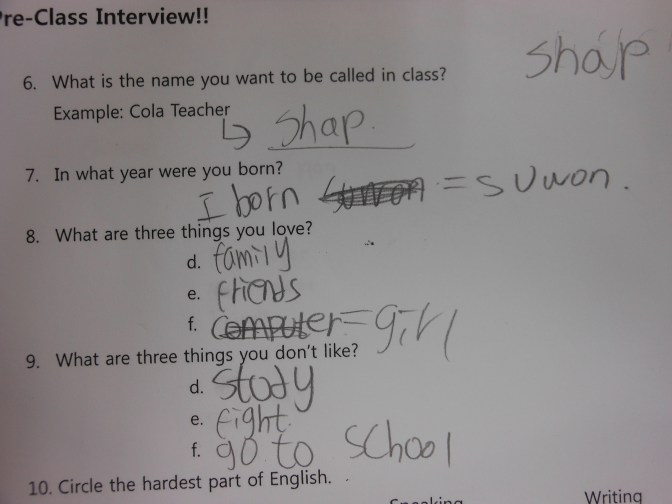 Pre-Class Interview!!
shap
6. What is the name you want to be called in class?
Example: Cola Teacher
↳ Shap.
7. In what year were you born?
I born suwon = suwon.
8. What are three things you love?
d. family
e. friends
f. computer = girl
9. What are three things you don't like?
d. study
e. fight.
f. go to school
10. Circle the hardest part of English.
Speaking Writing